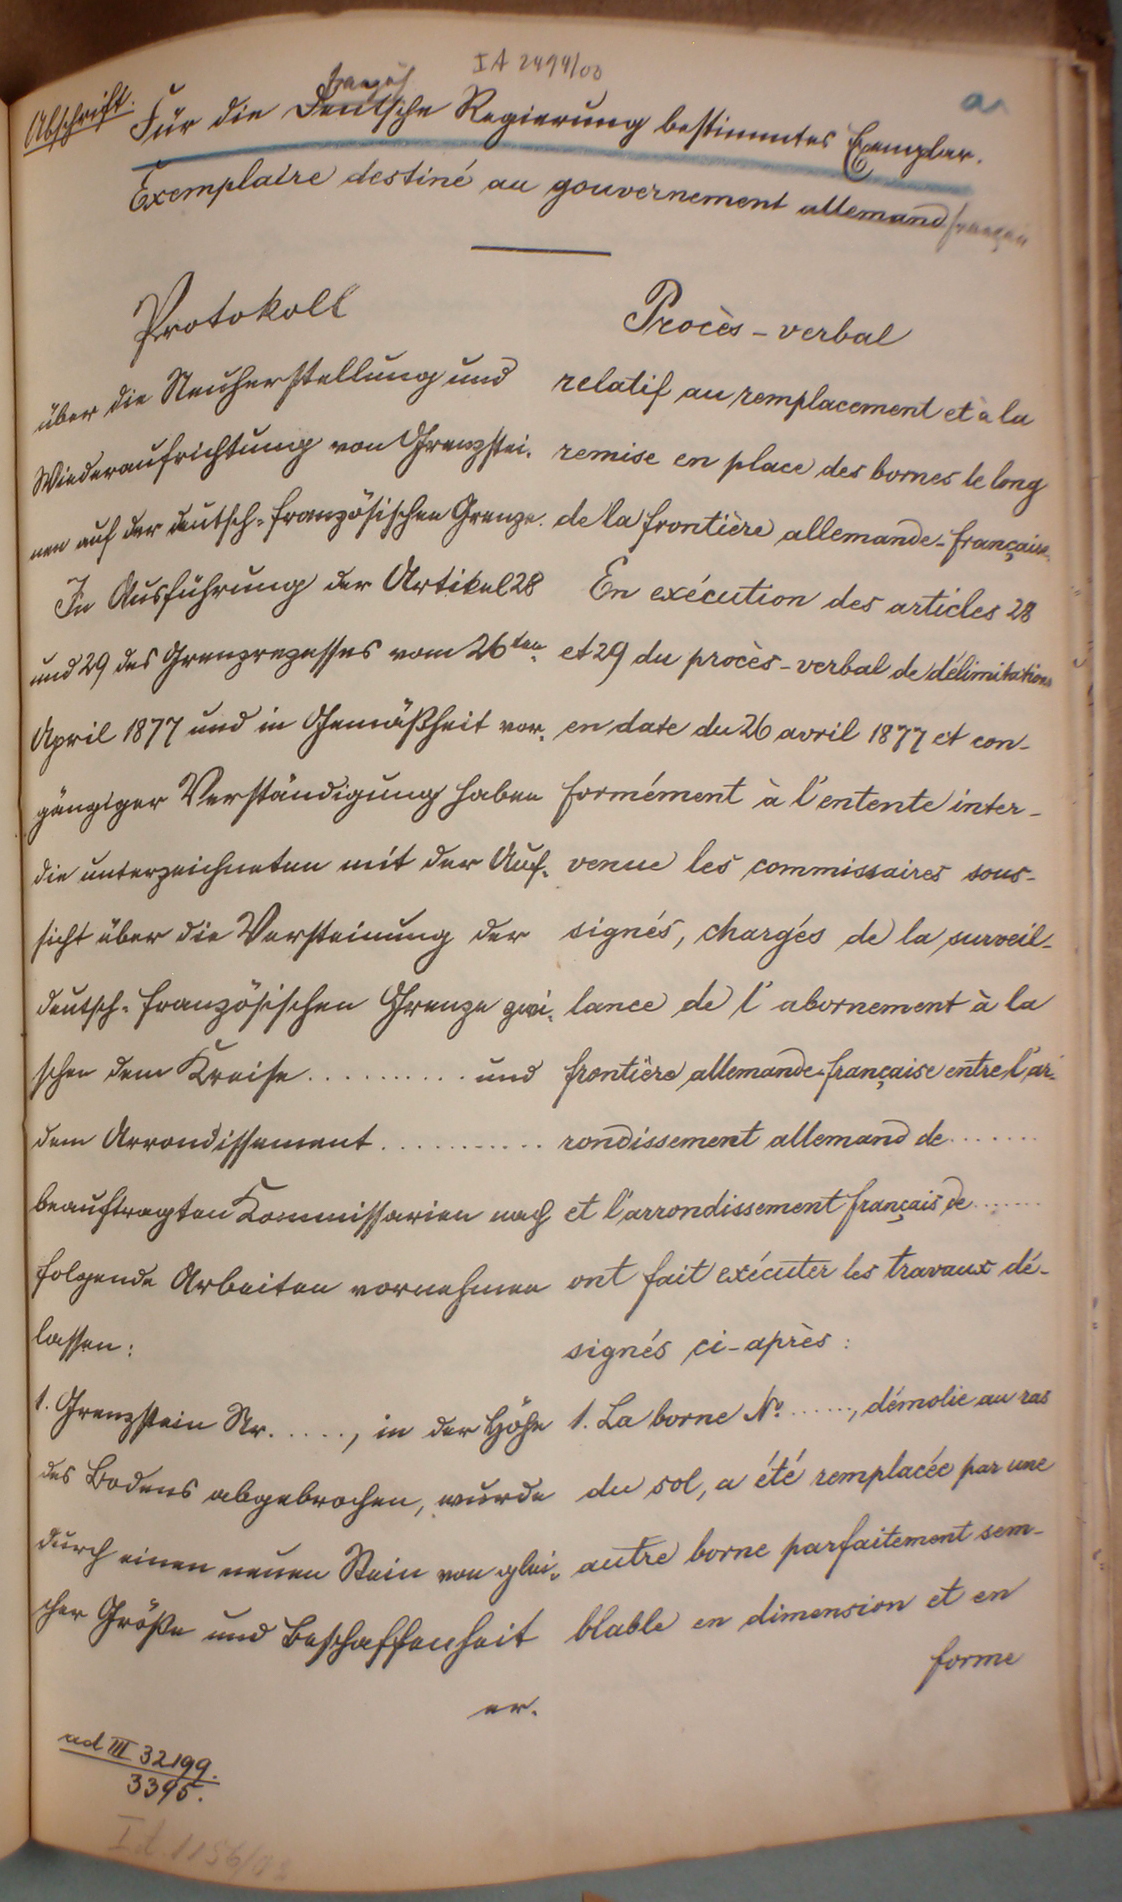 IA 2494/00
Abschrift.
französ
Für die Deutsche Regierung bestimmtes Exemplar.
Exemplaire destiné au gouvernement allemand français
Protokoll
über die Neuherstellung und
Wiederaufrichtung von Grenzstei-
nen auf der deutsch-französischen Grenze.
In Ausführung der Artikel 28
und 29 des Grenzrezesses vom 26ten
April 1877 und in Gemäßheit vor-
gängiger Verständigung haben
die unterzeichneten mit der Auf-
sicht über die Versteinung der
deutsch-französischen Grenze zwi-
schen dem Kreise .......... und
dem Arrondissement ...........
beauftragten Kommissarien nach
folgende Arbeiten vornehmen
lassen:
1. Grenzstein Nr. ....., in der Höhe
des Bodens abgebrochen, wurde
durch einen neuen Stein von glei-
cher Größe und Beschaffenheit
er-
Procès-verbal
relatif au remplacement et à la
remise en place des bornes le long
de la frontière allemande-française.
En exécution des articles 28
et 29 du procès-verbal de délimitation
en date du 26 avril 1877 et con-
formément à l'entente inter-
venue les commissaires sous-
signés, chargés de la surveil-
lance de l'abornement à la
frontière allemande-française entre l'ar-
rondissement allemand de .......
et l'arrondissement français de .......
ont fait exécuter les travaux dé-
signés ci-après :
1. La borne No ......, démolie au ras
du sol, a été remplacée par une
autre borne parfaitement sem-
blable en dimension et en
forme
ad III 32199.
3395.